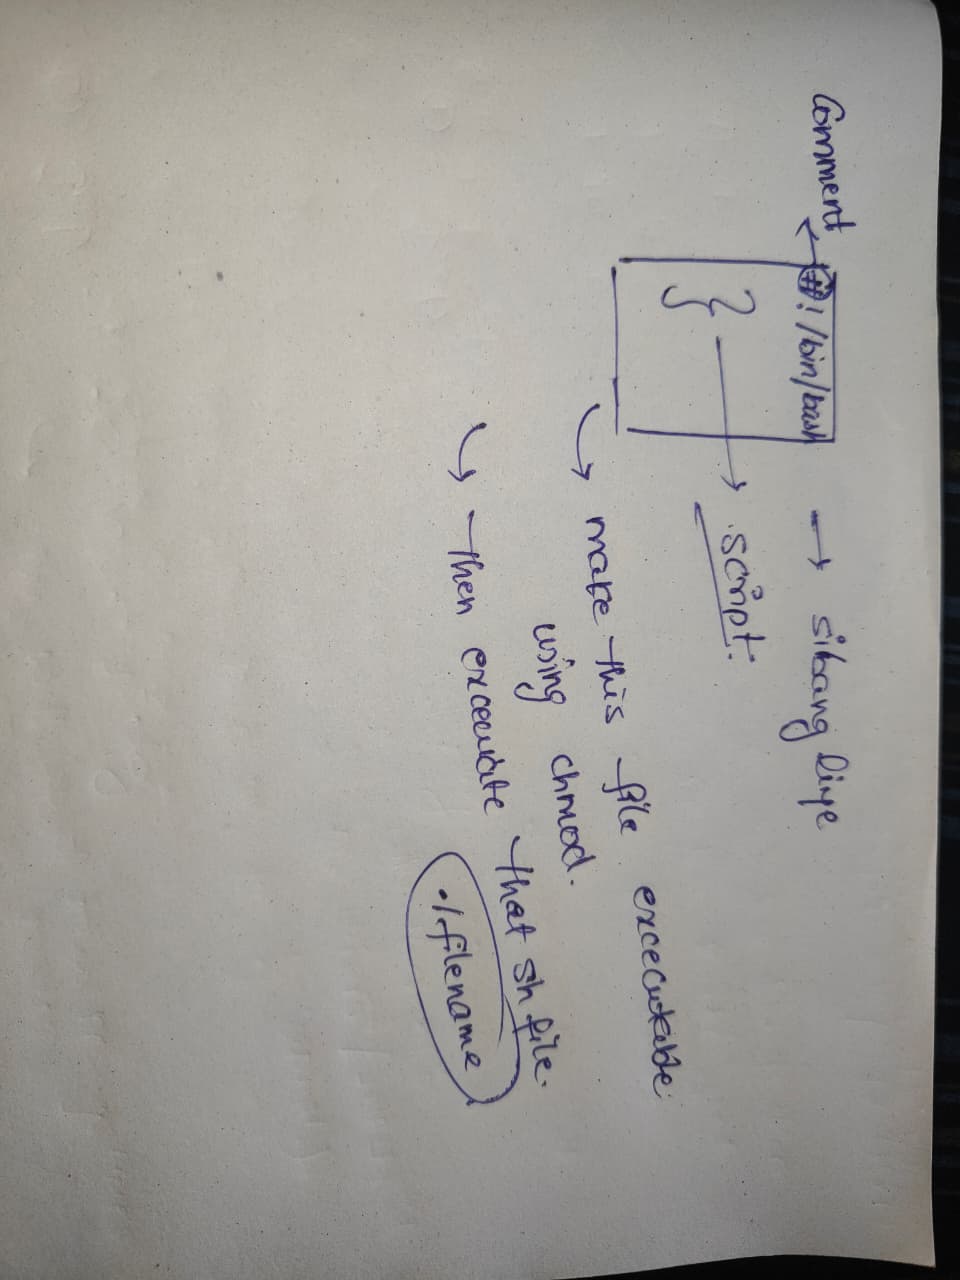 Comment
#!/bin/bash → sibang line
} → script.
↳ make this file excecutable
using chmod.
↳ then excecute that sh file.
./filename